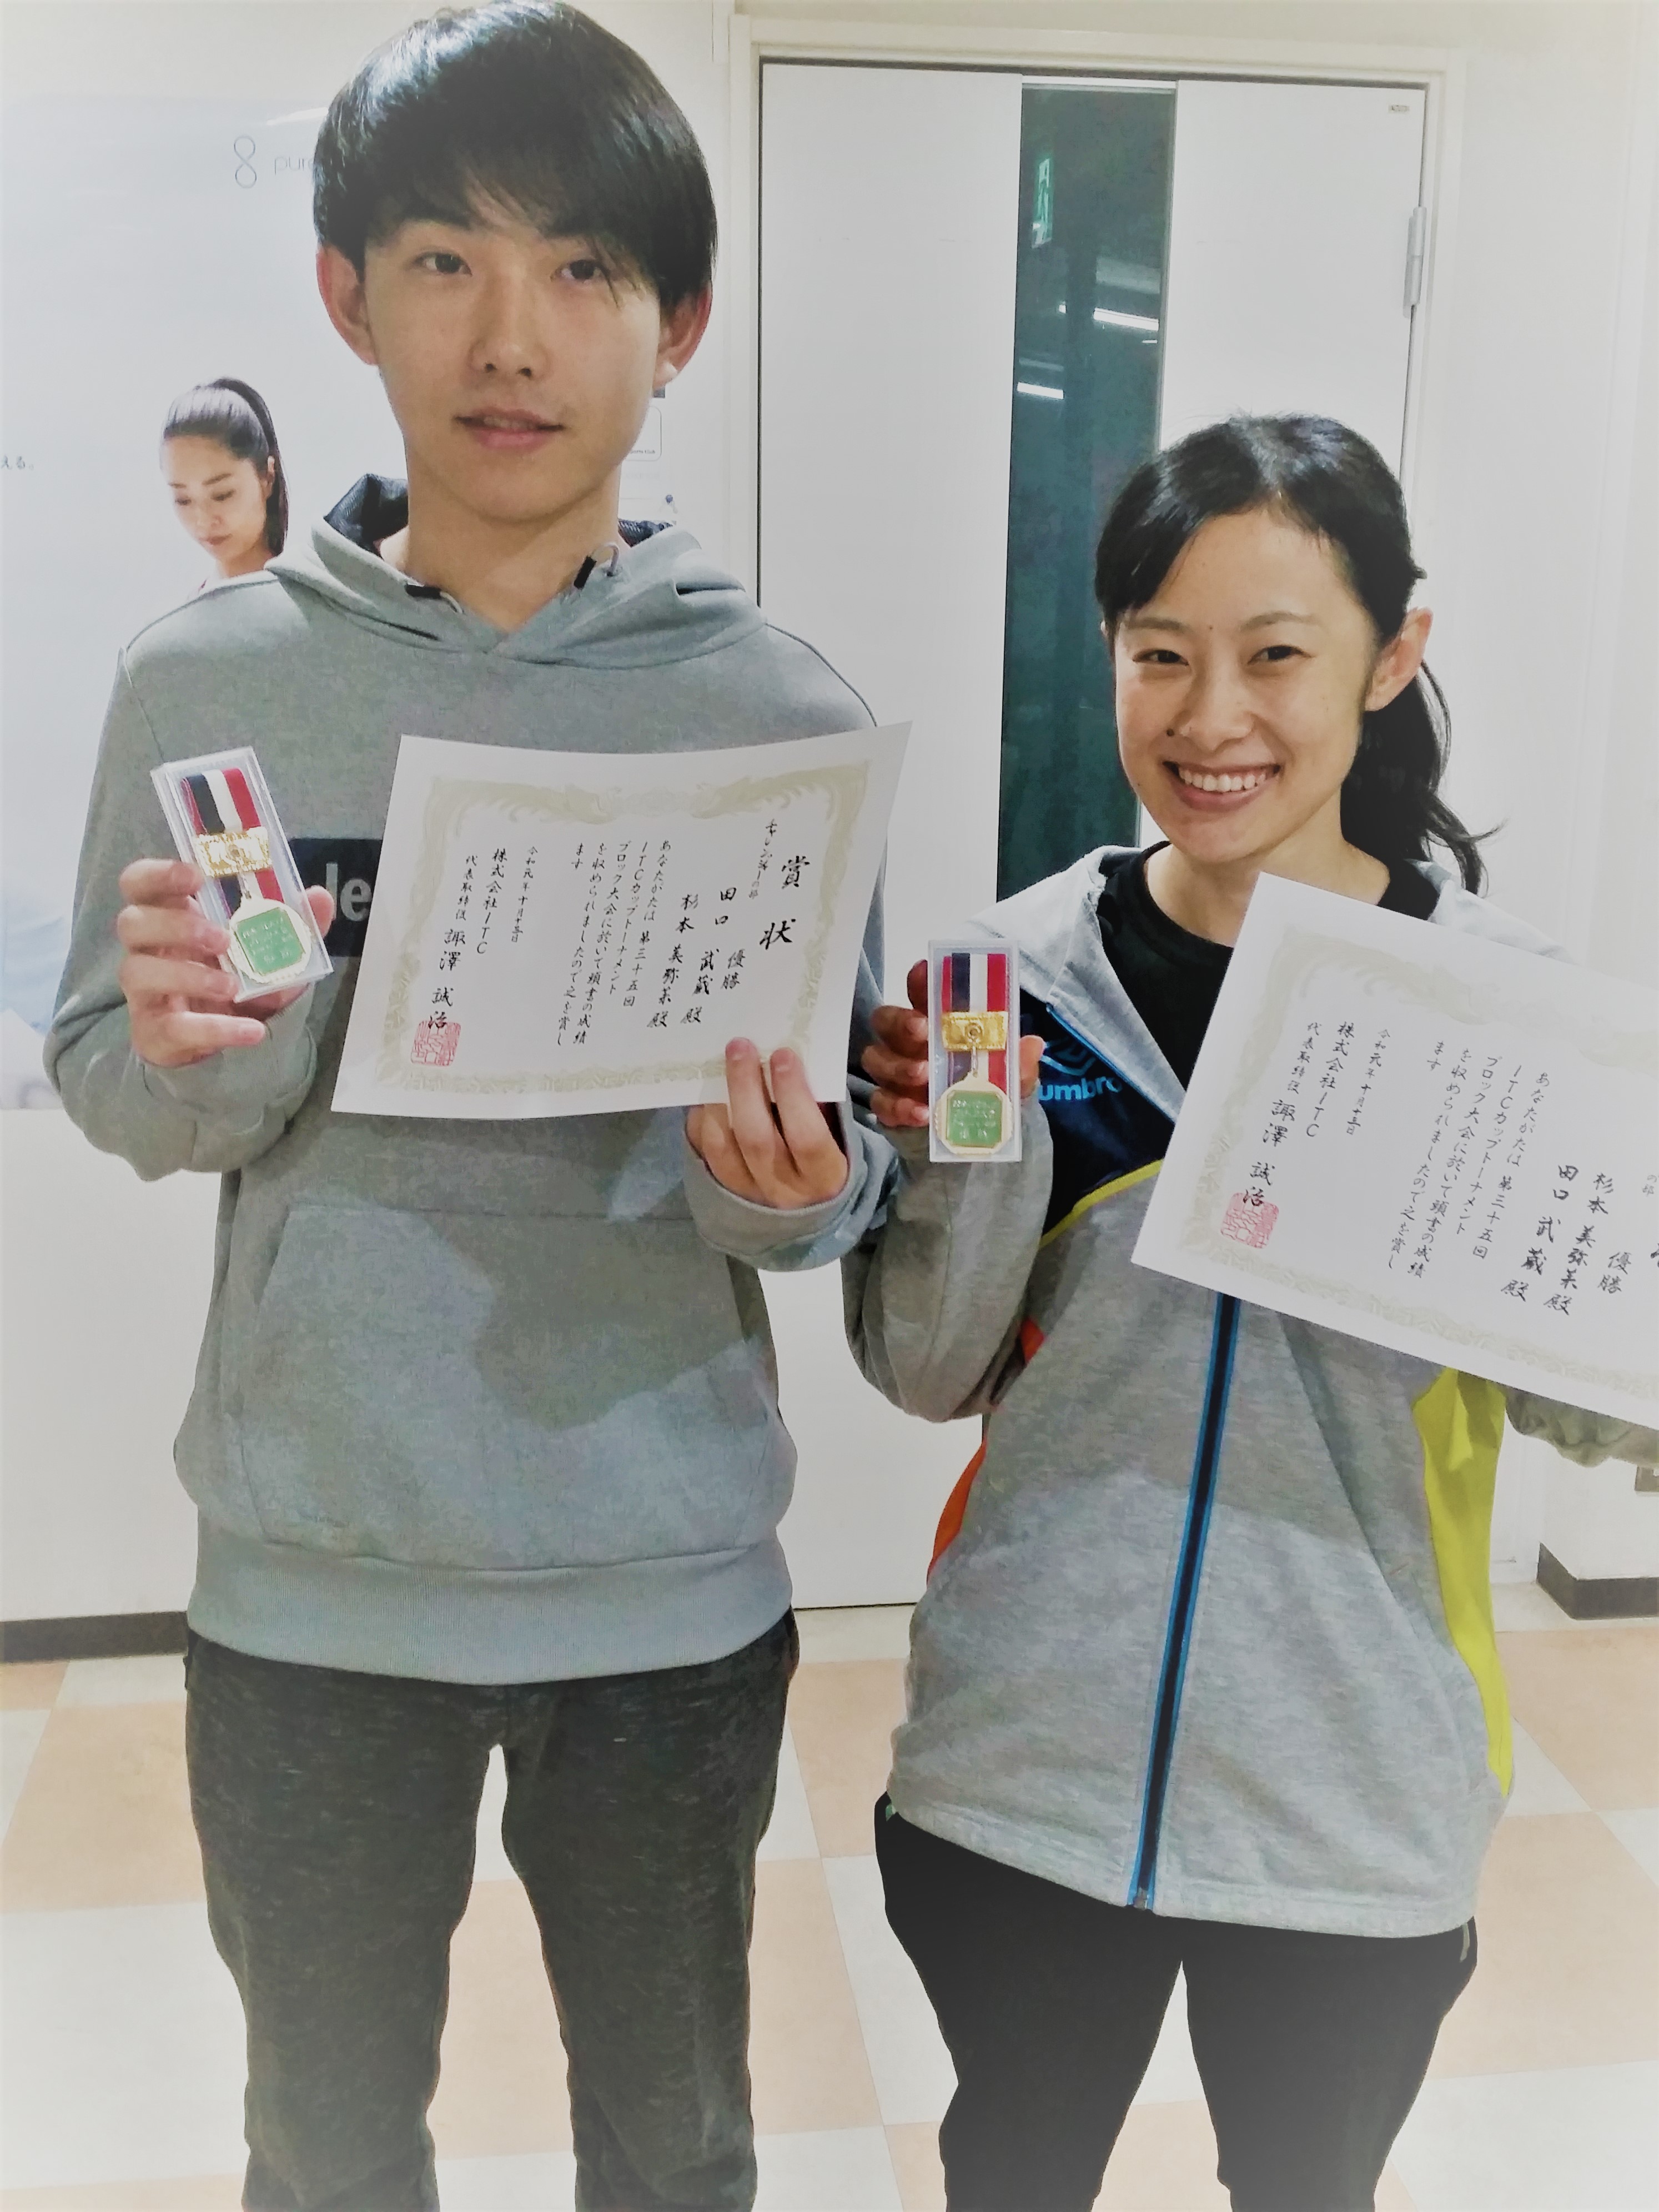 pure
える。
チャレンジの部
賞状
優勝
田口 武蔵 殿
杉本 美弥菜 殿
あなたがたは 第三十五回
ITCカップトーナメント
ブロック大会に於いて頭書の成績
を収められましたので之を賞し
ます
令和元年十月十三日
株式会社ITC
代表取締役 諏澤 誠治
le
umbro
の部
優勝
杉本 美弥菜 殿
田口 武蔵 殿
あなたがたは 第三十五回
ITCカップトーナメント
ブロック大会に於いて頭書の成績
を収められましたので之を賞し
ます
令和元年十月十三日
株式会社ITC
代表取締役 諏澤 誠治